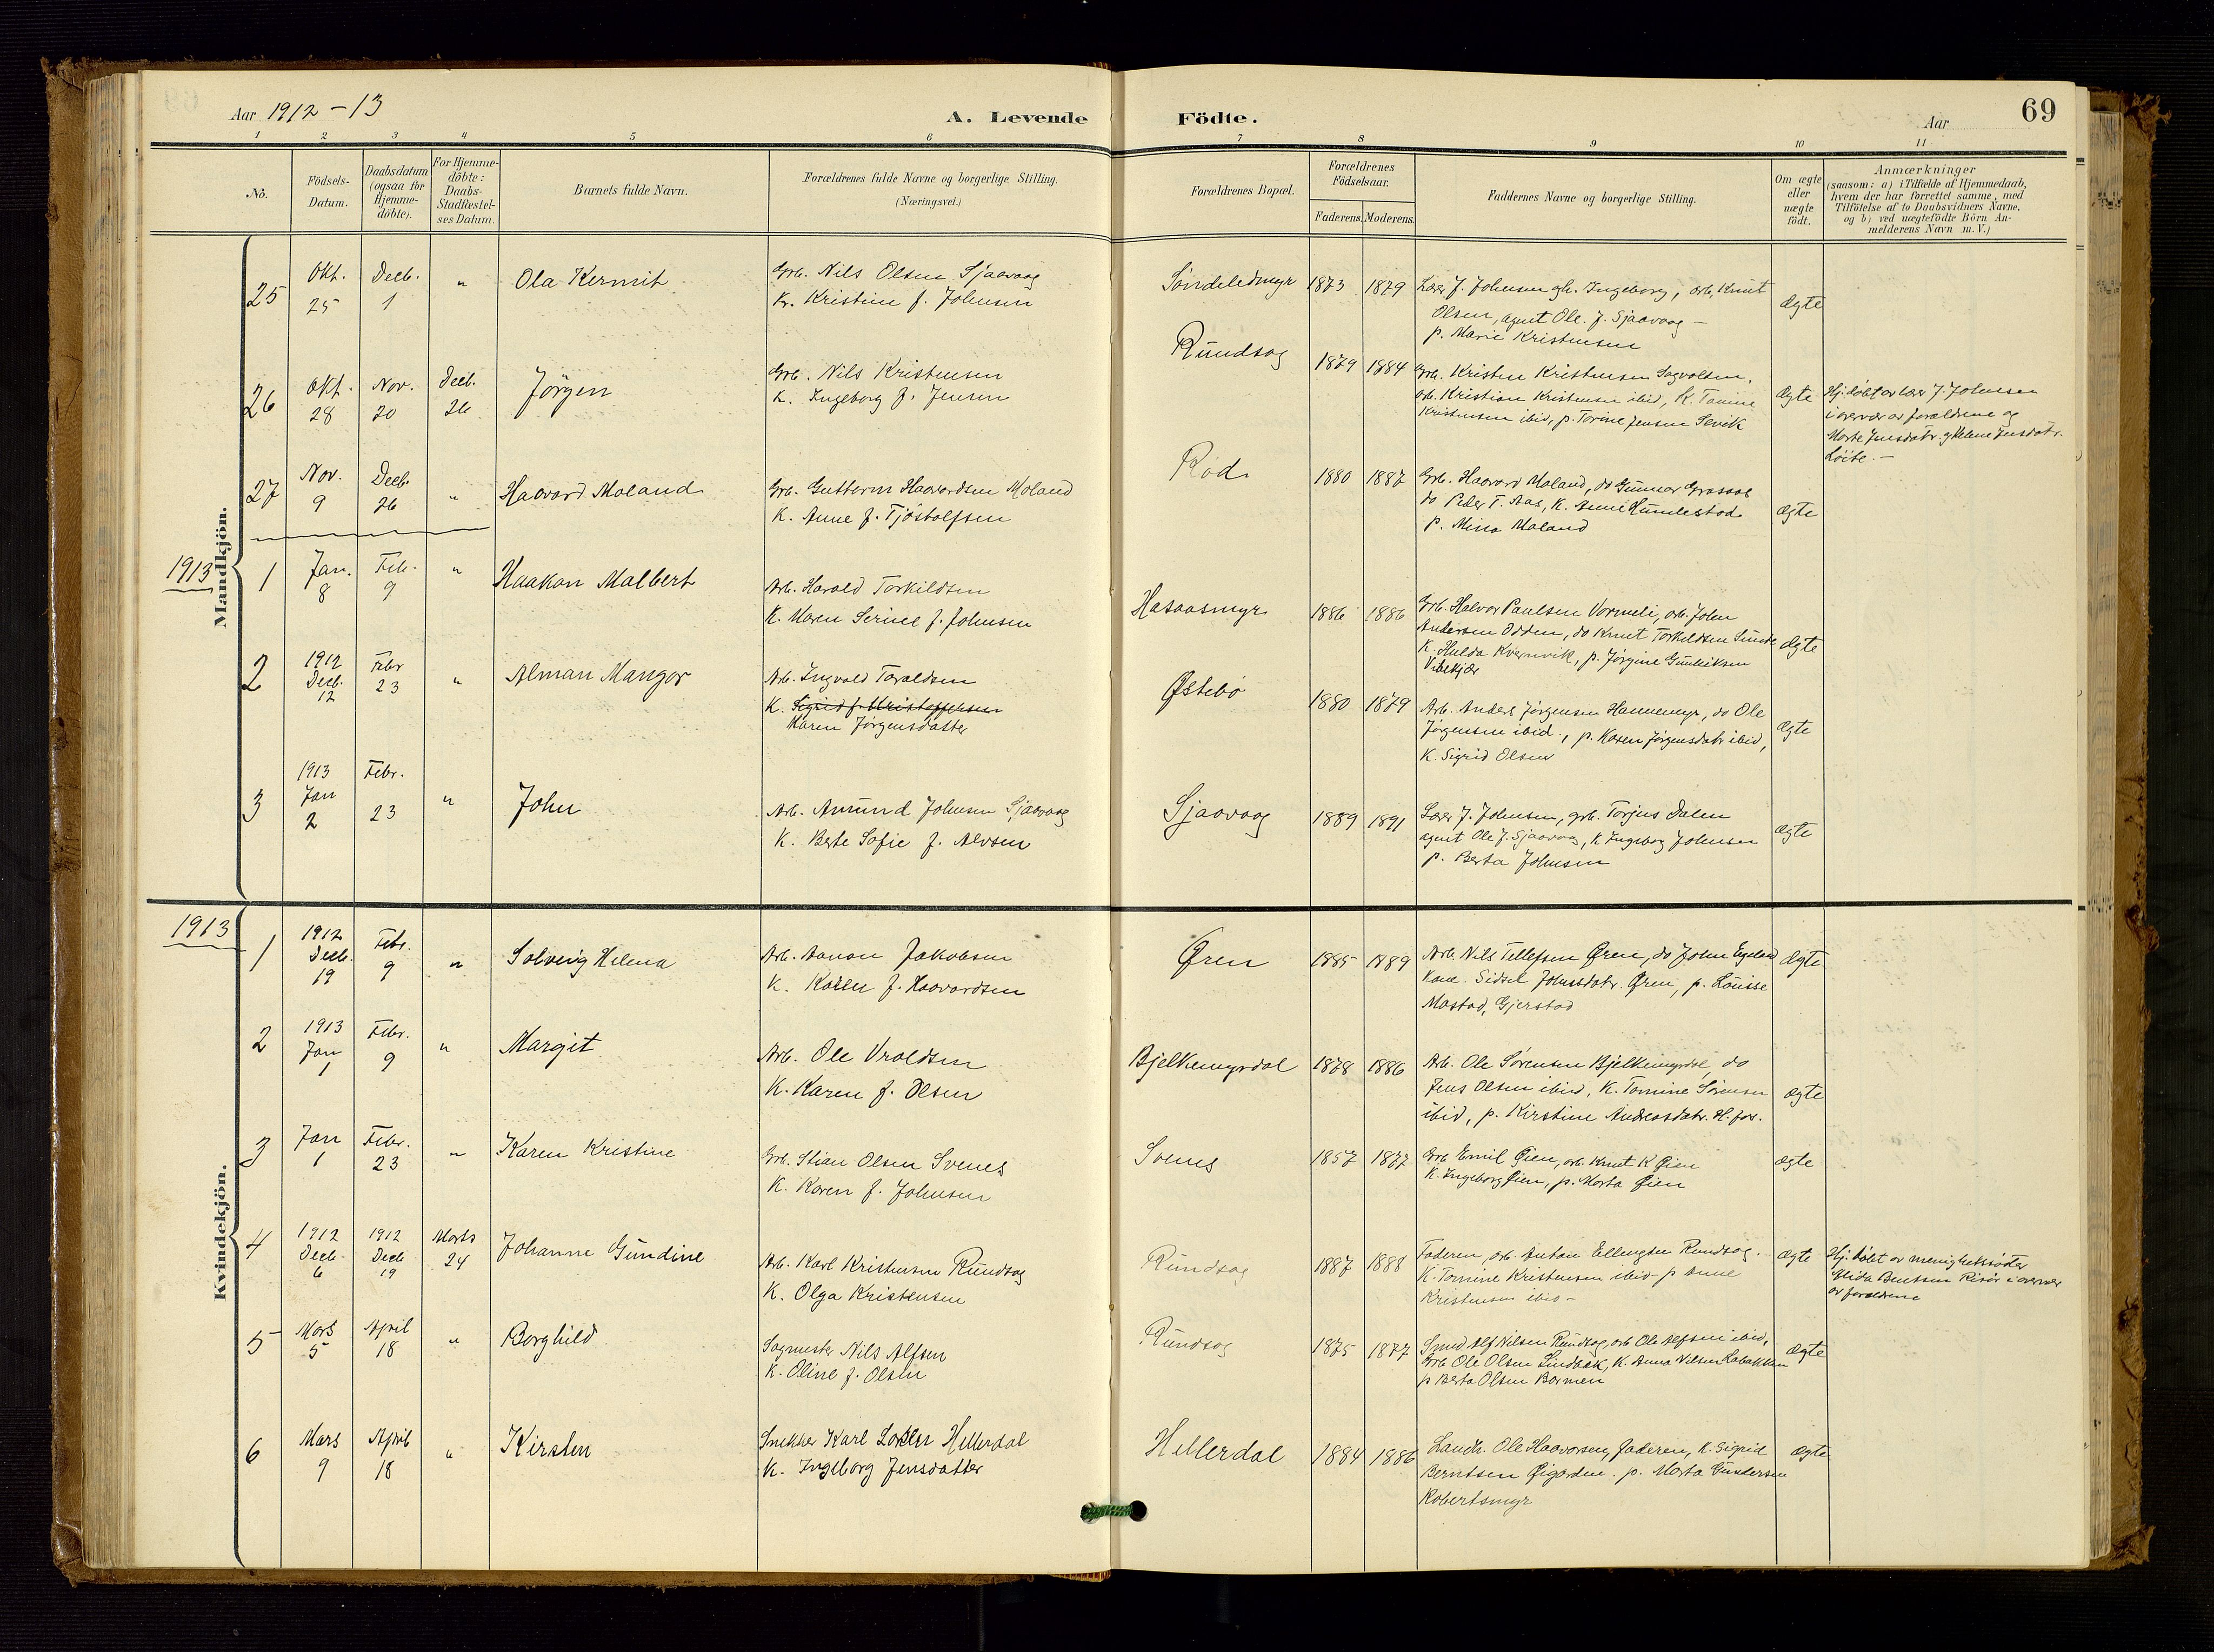 Aar 1912-13
A. Levende Födte.
Aar
69
1 2 3 4 5 6 7 8 9 10 11
No.
Födsels-Datum.
Daabsdatum (ogsaa for Hjemme-döbte).
For Hjemme-döbte: Daabs-Stadfæstel-ses Datum.
Barnets fulde Navn.
Forældrenes fulde Navne og borgerlige Stilling.
(Næringsvei.)
Forældrenes Bopæl.
Forældrenes Födselsaar.
Faderens. Moderens.
Faddernes Navne og borgerlige Stilling.
Om ægte eller uægte födt.
Anmærkninger
(saasom: a) i Tilfælde af Hjemmedaab,
hvem der har forrettet samme, med
Tilföielse af to Daabsvidners Navne,
og b) ved uægtefödte Börn An-
melderens Navn m.V.)
Mandkjön.
25 Okt. 25 Decb. 1 " Ola Kermit
Grb. Nils Olsen Sjaavaag
K. Kristine f. Johnsen
Söndeledmyr 1873 1879
Lær J. Johnsen gh. Ingeborg, arb. Knut
Olsen, agent Ole J. Sjaavaag -
p. Marie Kristensen
Ægte
26 Okt. 28 Nov. 20 Decb. 26 Jörgen
Grb. Nils Kristensen
K. Ingeborg f. Jensen
Rundsag 1879 1884
Grb. Kristen Kristensen Sagvolden,
arb. Kristian Kristensen ibid, K. Tomine
Kristensen ibid, p. Torine Jensen Sevik
Ægte
Hj. döbt av lærer J. Johnsen
i overvær av forældrene og
Marte Jensdatr. og Helene Jensdatr.
Löite. -
27 Nov. 9 Decb. 26 " Haavard Moland
Grb. Guttorm Haavardsen Moland
K. Anne f. Tjöstolfsen
Röd 1880 1887
Grb. Haavard Moland, do Gunnar Grasaas
do Peder T. Aas, K. Anne Humlestad
p. Mina Moland
Ægte
1913
1 Jan. 8 Feb. 9 " Haakon Malbert
Arb. Harald Torkildsen
K. Maren Serine f. Johnsen
Hasaasmyr 1886 1886
Grb. Halvor Paulsen Vormeli, arb. John
Andersen Odden, do Knut Torkildsen Sunde
K. Hulda Kvernvik, p. Jörgine Gunleiksen
Vibekjær
Ægte
2 1912 Decb. 12 Febr 23 " Alman Mangor
Arb. Ingvald Taraldsen
K. Sigrid f. Kristoffersen
Karen Jörgensdatter
Østebö 1880 1879
Arb. Anders Jörgensen Hannemyr, do Ole
Jörgensen ibid, p. Karen Jörgensdatr ibid,
K. Sigrid Olsen
Ægte
3 1913 Jan 2 Febr. 23 " John
Arb. Amund Johnsen Sjaavaag
K. Berte Sofie f. Alvsen
Sjaavaag 1889 1891
Lær J. Johnsen, grb. Torjus Dalen
agent Ole J. Sjaavaag, K Ingeborg Johnsen
p. Berta Johnsen
Ægte
Kvindekjön.
1913
1 1912 Decb. 19 Febr. 9 " Solveig Helena
Arb. Aanon Jakobsen
K. Karen f. Haavardsen
Øren 1885 1889
Arb. Nils Tellefsen Øren, do John Egeland
Kone Sidsel Johnsdatr. Øren, p. Louisse
Mostad, Gjerstad
Ægte
2 1913 Jan 1 Febr. 9 " Margit
Arb. Ole Vraldsen
K. Karen f. Olsen
Bjelkemyrdal 1878 1886
Arb. Ole Sörensen Bjelkemyrdal, do
Jens Olsen ibid, K. Tomine Sörensen
ibid, p. Kirstine Andreasdatr. H. fos.
Ægte
3 Jan 1 Febr. 23 " Karen Kristine
Grb. Stian Olsen Svenes
K. Karen f. Johnsen
Svenes 1857 1877
Grb Emil Øien, arb. Knut K Øien
K. Ingeborg Øien, p. Marta Øien
Ægte
4 1912 Decb. 6 1912 Decb 19 Marts 24 Johanne Gundine
Arb. Karl Kristensen Rundsag
K. Olga Kristensen
Rundsag 1887 1888
Faderen, arb. Anton Ellingsen Rundsag.
K. Tomine Kristensen ibid - p Anne
Kristensen ibid -
Ægte
Hj. döbt av menighetssöster
Alida Bentsen Risör i overvær
av forældrene
5 Mars 5 April 18 " Borghild
Sagmester Nils Alfsen
K. Oline f. Olsen
Rundsag 1875 1877
Smed Alf Nilsen Rundsag, arb Ole Alfsen ibid,
Grb Ole Olsen Lindbæk, K. Anna Nilsen Labakken
p Berta Olsen Barmen
Ægte
6 Mars 9 April 18 " Kirsten
Snekker Karl Larsen Hellerdal
K. Ingeborg Jensdatter
Hellerdal 1884 1886
Landh. Ole Haavorsen, faderen, K. Sigrid
Berntsen Øigarden. p. Marta Gundersen
Robertsmyr
Ægte